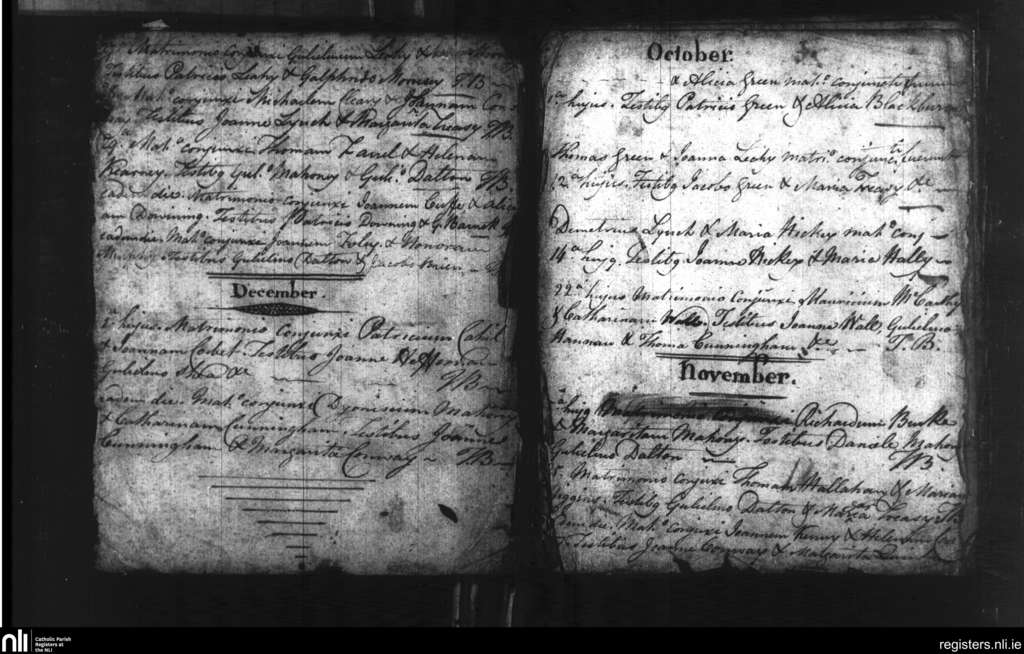 Matrimonio Conjunxi Gulielmum Leahy &
Testibus Patricio Leahy & Mooney TB
Mat. conjunxi Michaelem Cleary & Johannam Con
Testibus Joanne Lynch & Margarita Treasy TB
29 Mat.o conjunxi Thomam & Helenam
Kearney. Testibg Gul.o Mahony & Gul.o Dalton TB.
eadem die. Matrimonio conjunxi Joannem Cuffe & Alici
am Downing. Testibus Patricio Downing & G. Barnett
eadem die. Mat.o conjunxi Joannem Foley & Honoram
Murphy Testibus Gulielmo Dalton & Jacobo Brien
December.
hujus. Matrimonio Conjunxi Patricium Cahil
& Joannam Corbet. Testibus Joanne Heffernan
Gulielmo Shea &c TB
eadem die. Mat.o conjunxi Dyonisium Mahony
& Catharinam Cunningham. Testibus Joanne
Cunningham & Margarita Conway TB
October.
& Alicia Green mat.o conjuncti fuerunt
hujus. Testibg Patricio Green & Alicia Blackburn
Thomas Green & Joanna Leahy matri.o conjuncti fuerunt
12a hujus. Testibg Jacobo Green & Maria Treasy &c
Demetrius Lynch & Maria Hickey mat.o conj
14a hujg. Testibg Joanna Hickey & Maria Hally
22a hujus Matrimonio Conjunxi Mauricium McCarthy
& Catharinam Wall. Testibus Joanne Wall, Gulielmo
Hannan & Thoma Cunningham &c T.B.
November.
hujg Matrimonio conjunxi Richardum Burke
& Margaritam Mahony. Testibus Daniele Mahony
Gulielmo Dalton TB
Matrimonio Conjunxi Thomam Hallahan & Mariam
Higgins. Testibg Gulielmo Dalton & Maria Treasy TB
eadem die. Mat.o conjunxi Joannem Kenny & Helenam
Testibus Joanne Conway & Margarita
nli
Catholic Parish
Registers at
the NLI
registers.nli.ie